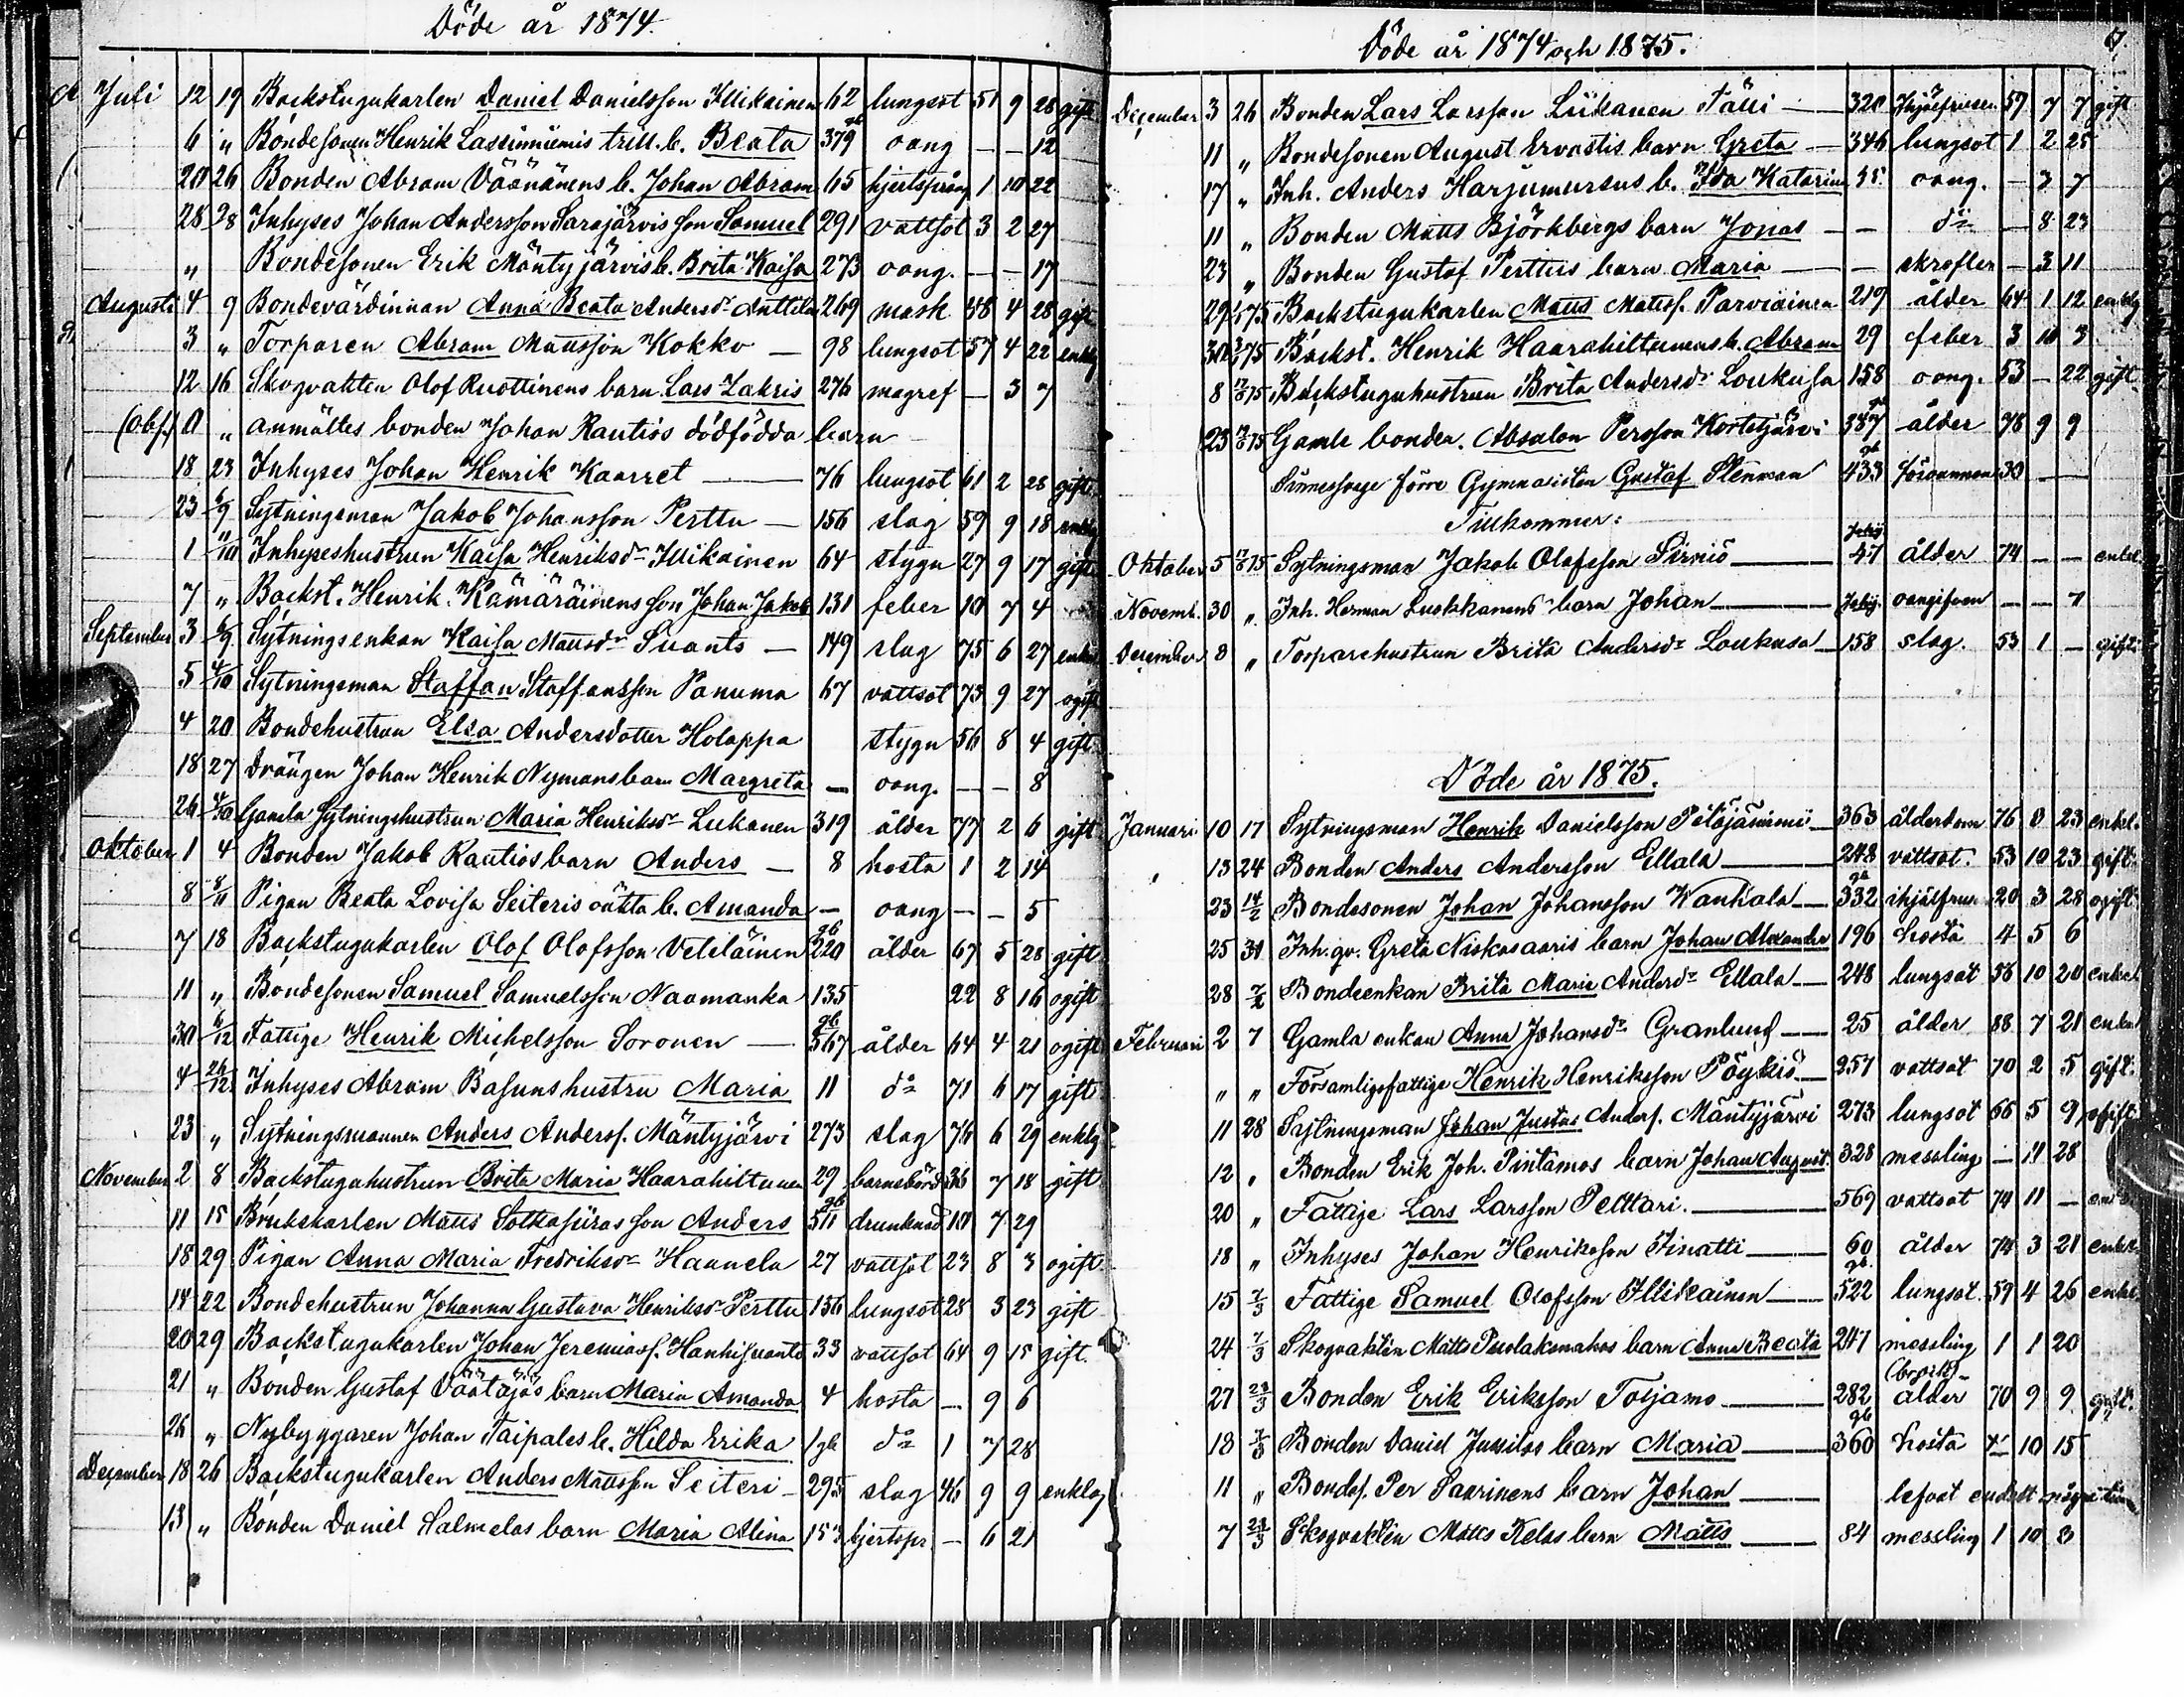 Döde år 1874.
Juli 12 19 Backstugukarlen Daniel Danielsson Illikainen 62 lungsot 51 9 28 gift
6 " Bondesonen Henrik Lassinniemis trill. b. Beata 379 oang — — 12
20 26 Bonden Abram Väänänens b. Johan Abram 65 hjertsprång 1 10 22
28 28 Inhyses Johan Andersson Sarajärvis son Samuel 291 vattsot 3 2 27
" Bondesonen Erik Mäntyjärvis b. Brita Kaisa 273 oang. — — 17
Augusti 4 9 Bondevärdinnan Anna Beata Andersdr Anttila 269 mask 48 4 28 gift
3 " Torparen Abram Mattsson Kokko — 98 lungsot 57 4 22 enklg
12 16 Skogvakten Olof Ruottinens barn Lars Zakris 276 magref — 3 7
(Obs.) 0 " anmältes bonden Johan Rautios dödfödda barn
18 23 Inhyses Johan Henrik Kaarret — 76 lungsot 61 2 28 gift
23 6/9 Sytningsman Jakob Johansson Perttu — 156 slag 59 9 18 enklg
1 11/10 Inhyseshustrun Kaisa Henriksdr Illikainen 64 stygn 27 9 17 gift
7 " Backst. Henrik Kämäräinens son Johan Jakob 131 feber 10 7 4
September 3 6/9 Sytningsenkan Kaisa Mattsdr Suants — 149 slag 75 6 27 enka
5 4/10 Sytningsman Staffan Staffansson Panuma 67 vattsot 73 9 27 ogift
4 20 Bondehustrun Elsa Andersdotter Holappa stygn 56 8 4 gift
18 27 Drängen Johan Henrik Nymans barn Margreta — oang. — — 8
26 4/10 Gamla Sytningshustrun Maria Henriksdr Lukanen 319 ålder 77 2 6 gift
Oktober 1 4 Bonden Jakob Rautios barn Anders — 8 hosta 1 2 14
8 8/11 Pigan Beata Lovisa Seiteris oäkta b. Amanda — oang — — 5
7 18 Backstugukarlen Olof Olofsson Veteläinen gb 220 ålder 67 5 28 gift
11 " Bondesonen Samuel Samuelsson Naamanka 135 22 8 16 ogift
30 6/12 Fattige Henrik Michelsson Soronen — gb 567 ålder 64 4 21 ogift
4 26/12 Inhyses Abram Basuns hustru Maria 11 do 71 6 17 gift
23 " Sytningsmannen Anders Anderss. Mäntyjärvi 273 slag 76 6 29 enklg
November 2 8 Backstuguhustrun Brita Maria Haarahiltunen 29 barnsbörd 36 7 18 gift
11 15 Brukskarlen Matts Sotkasiiras son Anders gb 511 drunknad 10 7 29
18 29 Pigan Anna Maria Fredriksdr Haanela 27 vattsot 23 8 3 ogift
14 22 Bondehustrun Johanna Gustava Henriksdr Perttu 156 lungsot 28 3 23 gift
20 29 Backstugukarlen Johan Jeremiass. Hanhisuanto 33 vattsot 64 9 15 gift.
21 " Bonden Gustaf Väätäjäs barn Maria Amanda 4 hosta — 9 6
26 " Nybyggaren Johan Taipales b. Hilda Erika 1gb do 1 7 28
December 18 26 Backstugukarlen Anders Mattsson Seiteri — 295 slag 46 9 9 enklag
13 " Bonden Daniel Salmelas barn Maria Alina 153 hjertspr — 6 21
Döde år 1874 och 1875.
67.
December 3 26 Bonden Lars Larsson Liikanen Tälli — 320 Ihjälfrusen 57 7 7 gift
11 " Bondesonen August Ervastis barn Greta — 346 lungsot 1 2 25
17 " Inh. Anders Harjumursus b. Ida Katarina 35. oang. — 3 7
11 " Bonden Matts Björkbergs barn Jonas — — do — 8 23
23 " Bonden Gustaf Perttus barn Maria — — skrofler — 3 11
29 1/1 75 Backstugukarlen Matts Matss. Parviainen 219 ålder 64 1 12 enklg
30 3/1 75 Backst. Henrik Haarahiltunens b. Abram 29 feber 3 10 3
8 17/1 75 Backstuguhustrun Brita Andersdr Loukusa 158 oang. 53 — 22 gift
23 17/1 75 Gamle bonden. Absalon Persson Kortetjärvi gb 387 ålder 78 9 9
Sinnessvage förre Gymnasisten Gustaf Stenman gb 433 försvunnen 30 — —
Tillkommer:
Oktober 5 17/1 75 Sytningsman Jakob Olofsson Sirniö — 47 ålder 74 — — enkel
Novemb. 30 " Inh. Herman Luokkanens barn Johan — oangifven — — 7
December 8 " Torparehustrun Brita Andersdr Loukusa — 158 slag. 53 1 — gift
Döde år 1875.
Januari 10 17 Sytningsman Henrik Danielsson Petäjäniemi — 363 ålderdom 76 8 23 enkel.
13 24 Bonden Anders Andersson Ellala — 248 vattsot. 53 10 23 gift
23 14/2 Bondesonen Johan Johansson Wankala — gb 332 ihjälfrus. 20 3 28 ogift
25 31 Inh. qv. Greta Niskasaaris barn Johan Alexander 196 hosta 4 5 6
28 7/2 Bondeenkan Brita Maria Andersdr Ellala — 248 lungsot 56 10 20 enkel
Februari 2 7 Gamla enkan Anna Johansdr Granlund — 25 ålder 88 7 21 enka
" " Församligsfattige Henrik Henriksson Pöykiö — 257 vattsot 70 2 5 gift.
11 28 Sytningsman Johan Justus Anderss. Mäntyjärvi 273 lungsot 66 5 9 ogift
12 " Bonden Erik Joh. Pintamos barn Johan August 328 messling — 11 28
20 " Fattige Lars Larsson Pelttari. — 569 vattsot 74 11 —
18 " Inhyses Johan Henriksson Finatti — 60 ålder 74 3 21 enkel
15 7/3 Fattige Samuel Olofsson Illikainen — gb. 522 lungsot. 59 4 26 enkel
24 7/3 Skogvakten Matts Puolakanahos barn Anna Beata 247 messling 1 1 20
27 21/3 Bonden Erik Eriksson Toljamo — 282 ålder 70 9 9 gift.
18 7/3 Bonden Daniel Jussilas barn Maria — gb 360 hosta 10 15
11 " Bondes. Per Saarinens barn Johan — lefvat endast några
7 21/3 Skogvakten Matts Kelas barn Matts — 84 messling 1 10 3